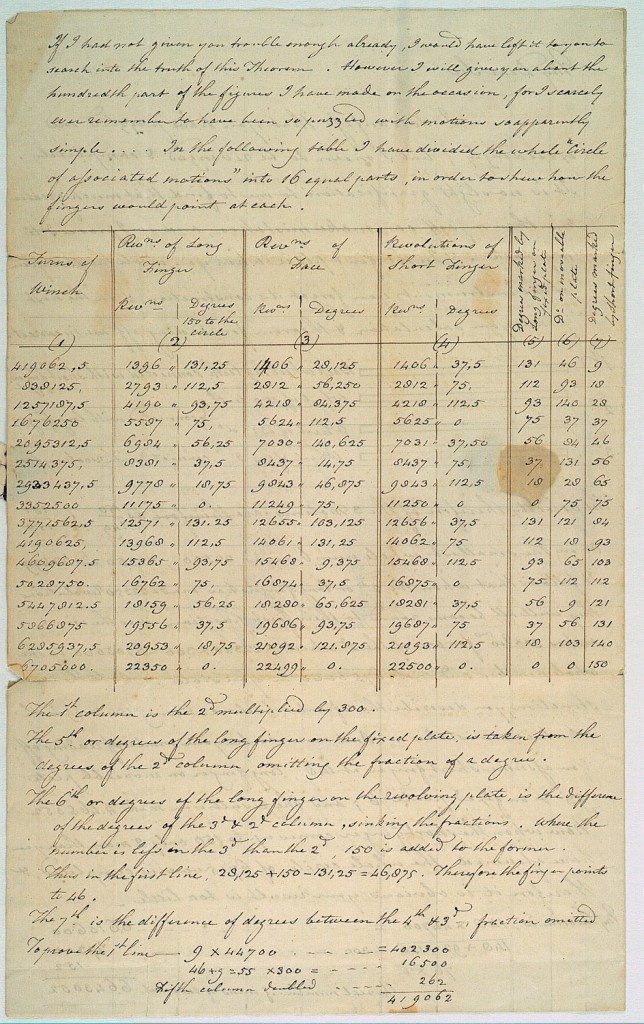 If I had not given you trouble enough already, I would have left it to you to
search into the truth of this Theorem. However I will give you about the
hundredth part of the figures I have made on the occasion, for I scarcely
ever remember to have been so puzzled with motions so apparently
simple .... In the following table I have divided the whole "Circle
of associated motions" into 16 equal parts, in order to shew how the
fingers would point, at each.
Turns of Winch | Revns of Long Finger | Revns of Face | Revolutions of Short Finger | Degrees marked by Long finger on fixed plate | Do on moveable plate | Degrees marked by Short finger
Revns | Degrees 150 to the circle | Revns | Degrees | Revns | Degrees
(1) (2) (3) (4) (5) (6) (7)
419062,5 1396 " 131,25 1406 " 28,125 1406 " 37,5 131 46 9
838125, 2793 " 112,5 2812 " 56,250 2812 " 75, 112 93 18
1257187,5 4190 " 93,75 4218 " 84,375 4218 " 112,5 93 140 28
1676250 5587 " 75, 5624 " 112,5 5625 " 0 75 37 37
2095312,5 6984 " 56,25 7030 " 140,625 7031 " 37,50 56 84 46
2514375, 8381 " 37,5 8437 " 14,75 8437 " 75, 37 131 56
2933437,5 9778 " 18,75 9843 " 46,875 9843 " 112,5 18 28 65
3352500 11175 " 0. 11249 " 75, 11250 " 0 0 75 75
3771562,5 12571 " 131.25 12655 " 103,125 12656 " 37,5 131 121 84
4190625, 13968 " 112,5 14061 " 131,25 14062 " 75 112 18 93
4609687,5 15365 " 93,75 15468 " 9,375 15468 " 112,5 93 65 103
5028750. 16762 " 75, 16874 " 37,5 16875 " 0 75 112 112
5447812.5 18159 " 56,25 18280 " 65,625 18281 " 37,5 56 9 121
5866875 19556 " 37,5 19686 " 93,75 19687 " 75 37 56 131
6285937,5 20953 " 18,75 21092 " 121.875 21093 " 112,5 18 103 140
6705000. 22350 " 0. 22499 " 0. 22500 " 0 0 0 150
The 1st column is the 2d multiplied by 300.
The 5th or degrees of the long finger on the fixed plate, is taken from the
degrees of the 2d column, omitting the fraction of a degree.
The 6th or degrees of the long finger on the revolving plate, is the difference
of the degrees of the 3d & 2d column, sinking the fractions. Where the
number is less in the 3d than the 2d 150 is added to the former.
Thus in the first line, 28,125 + 150 - 131,25 = 46,875. Therefore the finger points
to 46.
The 7th is the difference of degrees between the 4th & 3d, fraction omitted
To prove the 1st line — 9 x 44700 - - - = 402300
46 + 9 = 55 x 300 = - - - - 16500
Fifth column doubled - - - - - 262
419062